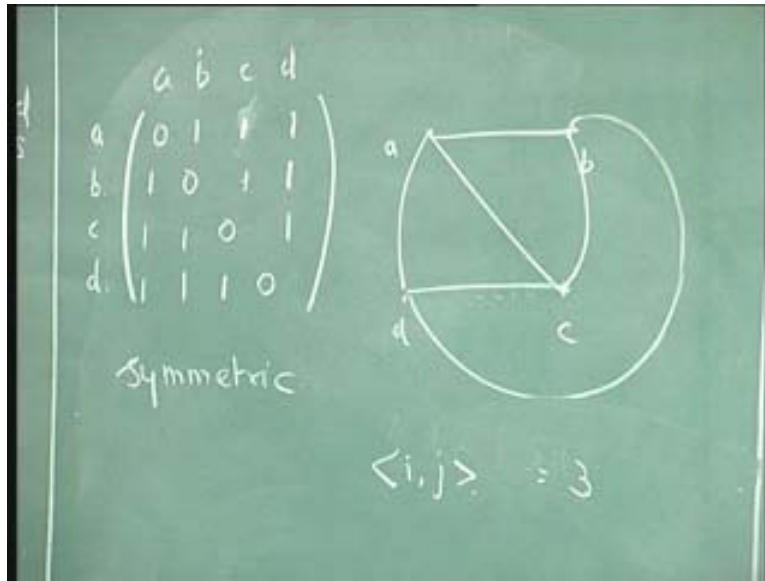 a b c d
a 0 1 1 1
b. 1 0 1 1
c 1 1 0 1
d. 1 1 1 0
symmetric
a
b
d
c
<i,j> = 3